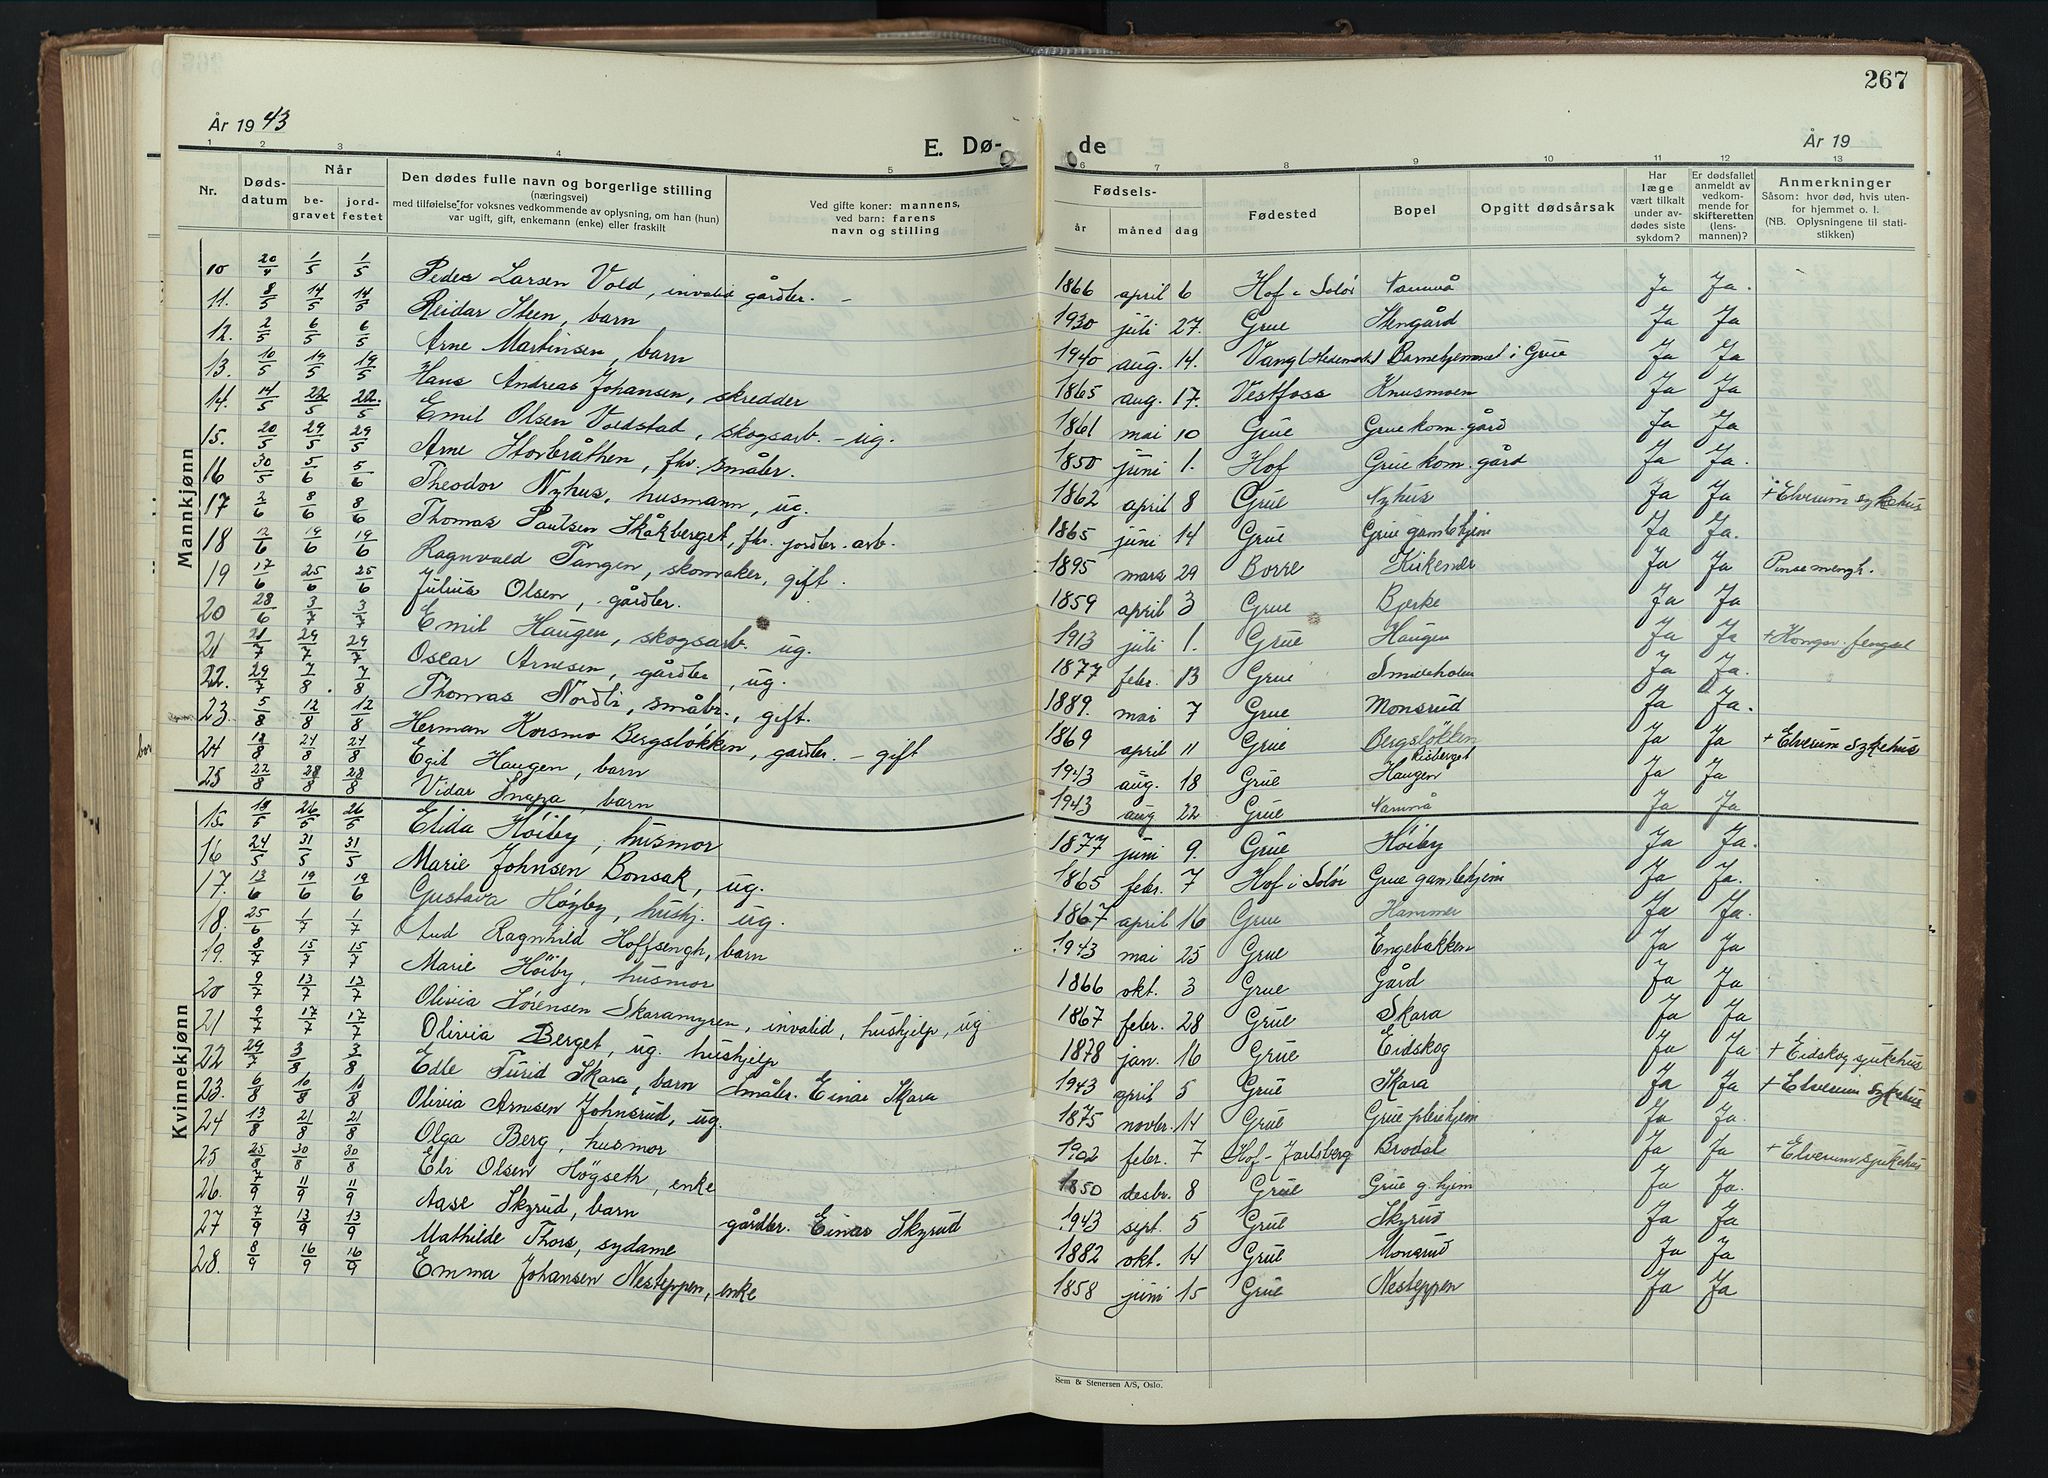 267
År 1943
E. Dø-
de
År 19
1 2 3 4 5 6 7 8 9 10 11 12 13
Nr.
Døds-
datum
Når
be-
gravet
jord-
festet
Den dødes fulle navn og borgerlige stilling
(næringsvei)
med tilføielse for voksnes vedkommende av oplysning, om han (hun)
var ugift, gift, enkemann (enke) eller fraskilt
Ved gifte koner: mannens,
ved barn: farens
navn og stilling
Fødsels-
år
måned
dag
Fødested
Bopel
Opgitt dødsårsak
Har
læge
vært tilkalt
under av-
dødes siste
sykdom?
Er dødsfallet
anmeldt av
vedkom-
mende for
skifteretten
(lens-
mannen)?
Anmerkninger
Såsom: hvor død, hvis uten-
for hjemmet o. l.
(NB. Oplysningene til stati-
stikken)
Mannkjønn
10 20/4 1/5 1/5 Peder Larsen Vold, invalid gårdbr. - 1866 april 6 Hof i Solør Nammå Ja Ja.
11. 8/5 14/5 14/5 Reidar Steen, barn 1930 juli 27. Grue Stengård Ja Ja
12. 2/5 6/5 6/5 Arne Martinsen, barn 1940 aug. 14. Vang Hedemark Barnehjemmet i Grue Ja Ja
13. 10/5 19/5 19/5 Hans Andreas Johansen, skredder 1865 aug. 17. Vestfoss Knusmoen Ja Ja
14. 14/5 22/5 22/5 Emil Olsen Voldstad, skogsarb. - ug. 1861 mai 10 Grue Grue kom. gård Ja Ja
15. 20/5 29/5 29/5 Arne Storbråthen, fhv. småbr. 1850 juni 1. Hof Grue kom. gård Ja Ja.
16 30/5 5/6 5/6 Theodor Nyhus, husmann, ug. 1862 april 8 Grue Nyhus Ja Ja + Elverum sykehus
17 2/6 8/6 8/6 Thomas Paulsen Skåkberget, fhv. jordbr. arb. 1865 juni 14 Grue Grue gamlehjem Ja Ja.
18 12/6 19/6 19/6 Ragnvald Tangen, skomaker, gift. 1895 mars 29 Borre Kirkenær Ja Ja Pinsemengh.
19 17/6 25/6 25/6 Julius Olsen, gårdbr. 1859 april 3 Grue Bjerke Ja Ja
20 28/6 3/7 3/7 Emil Haugen, skogsarb. ug. 1913 juli 1. Grue Haugen Ja Ja + Kongsv. fengsel
21 21/7 29/7 29/7 Oscar Arnesen, gårdbr, ug. 1877 febr. 13 Grue Ja Ja.
22. 29/7 7/8 7/8 Thomas Nordli, småbr., gift. 1889. mai 7 Grue Monsrud Ja Ja.
23. 5/8 12/8 12/8 Herman Korsmo Bergsløkken, gårdbr. - gift 1869 april 11 Grue Bergsløkken Ja Ja + Elverum Sykehus
Risberget
24 18/8 24/8 24/8 Egil Haugen, barn 1943 aug. 18 Grue Haugen Ja Ja
25 22/8 28/8 28/8 Vidar Snapa, barn 1943 aug 22 Grue Nammå Ja Ja
Kvinnekjønn
15. 18/5 26/5 26/5 Elida Høiby, husmor 1877 juni 9. Grue Høiby Ja Ja.
16 24/5 31/5 31/5 Marie Johnsen Bonsak, ug. 1865 febr. 7 Hof i Solør Grue gamlehjem Ja Ja.
17. 13/6 19/6 19/6 Gustava Høyby, hushj. ug. 1867 april 16 Grue Hammer Ja Ja.
18. 25/6 1/7 1/7 Aud Ragnhild Hoffsengh, barn 1943 mai 25 Grue Engebakken Ja Ja
19. 8/7 15/7 15/7 Marie Höiby, husmor 1866 okt. 3 Grue Gård Ja Ja
20 9/7 13/7 13/7 Olivia Sørensen Skaramyren, invalid, hushjelp, ug 1867 febr. 28 Grue Skara Ja Ja
21 9/7 17/7 17/7 Olivia Berget, ug. hushjelp 1878 jan. 16 Grue Eidskog Ja Ja + Eidskog sjukehus
22 29/7 3/8 3/8 Edle Turid Skara, barn Småbr. Einar Skara 1943 april 5 Grue Skara Ja Ja + Elverum sykehus
23. 6/8 10/8 10/8 Olivia Arnesen Johnsrud, ug. 1875 novbr. 14 Grue Grue pleiehjem Ja Ja.
24 13/8 21/8 21/8 Olga Berg, husmor 1902 febr. 7 Hof - Jarlsberg Brodal Ja Ja + Elverum sjukehus
25 25/8 30/8 30/8 Eli Olsen Högseth, enke 1850 desbr. 8 Grue Grue g. hjem Ja Ja.
26. 7/9 11/9 11/9 Aase Skyrud, barn gårdbr. Einar Skyrud 1943 sept. 5 Grue Skyrud Ja Ja
27 7/9 13/9 13/9 Mathilde Thors, sydame 1882 okt. 14 Grue Monsrud Ja Ja
28. 8/9 16/9 16/9 Emma Johansen Nesteppen, enke 1858 juni 15 Grue Nesteppen Ja Ja
Sem & Stenersen A/S, Oslo.